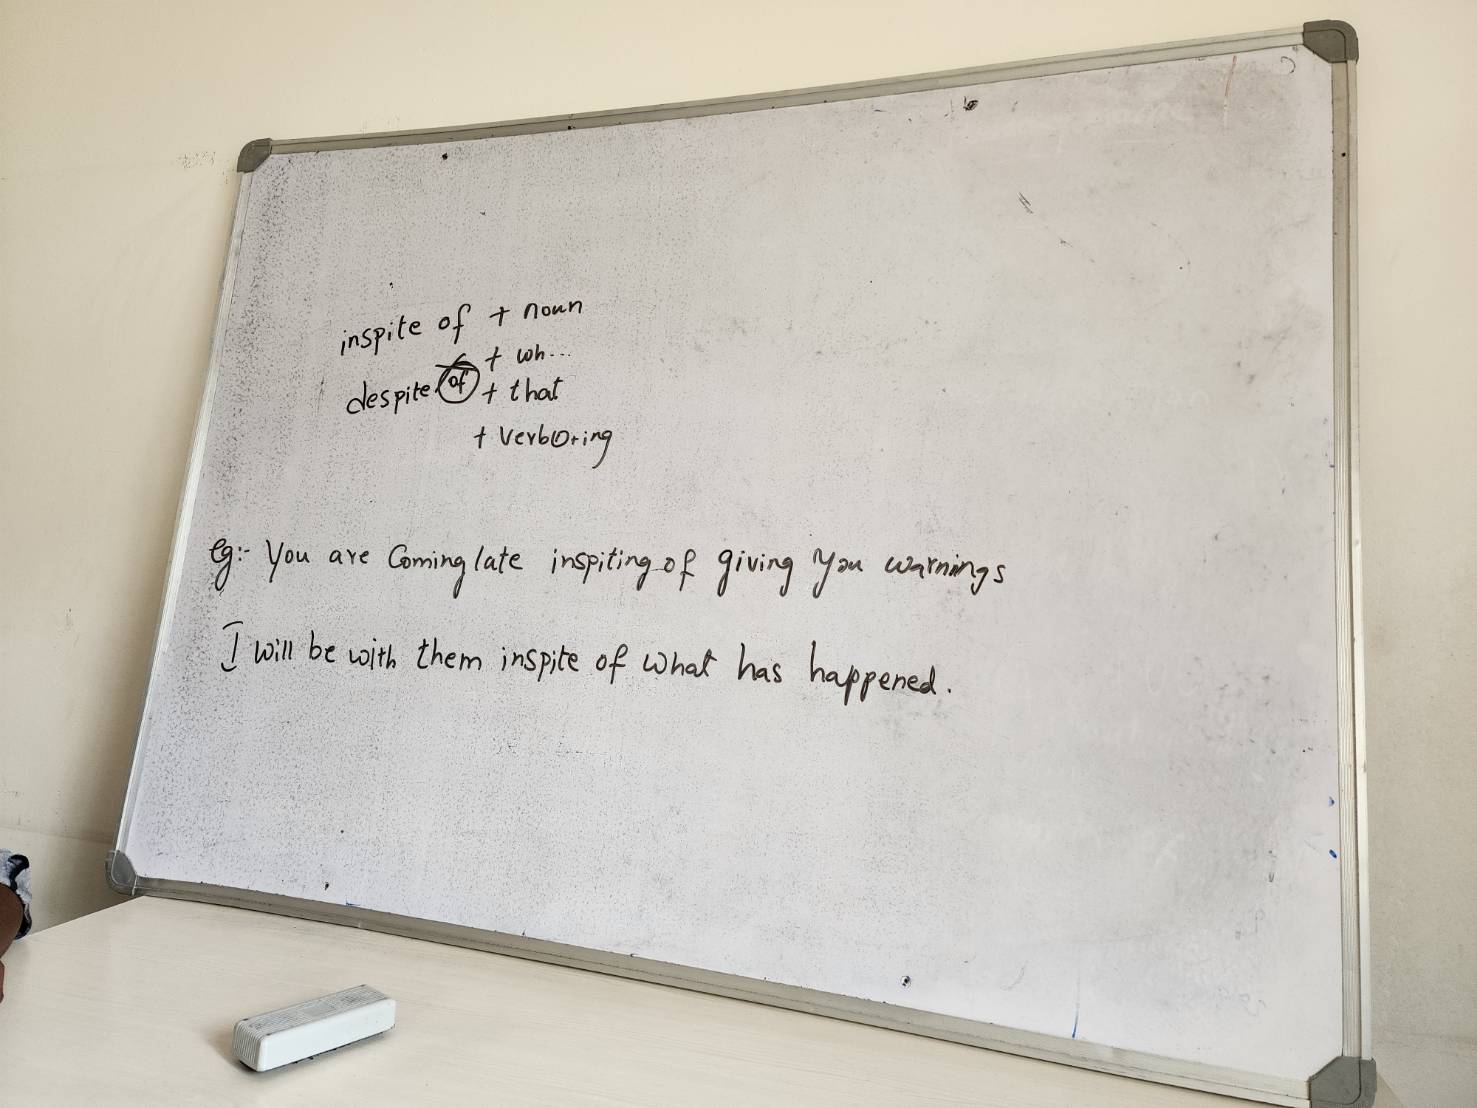 inspite of + noun
+ wh...
despite of + that
+ verb①+ing
eg:- You are Coming late inspiting of giving you warnings
I will be with them inspite of what has happened.